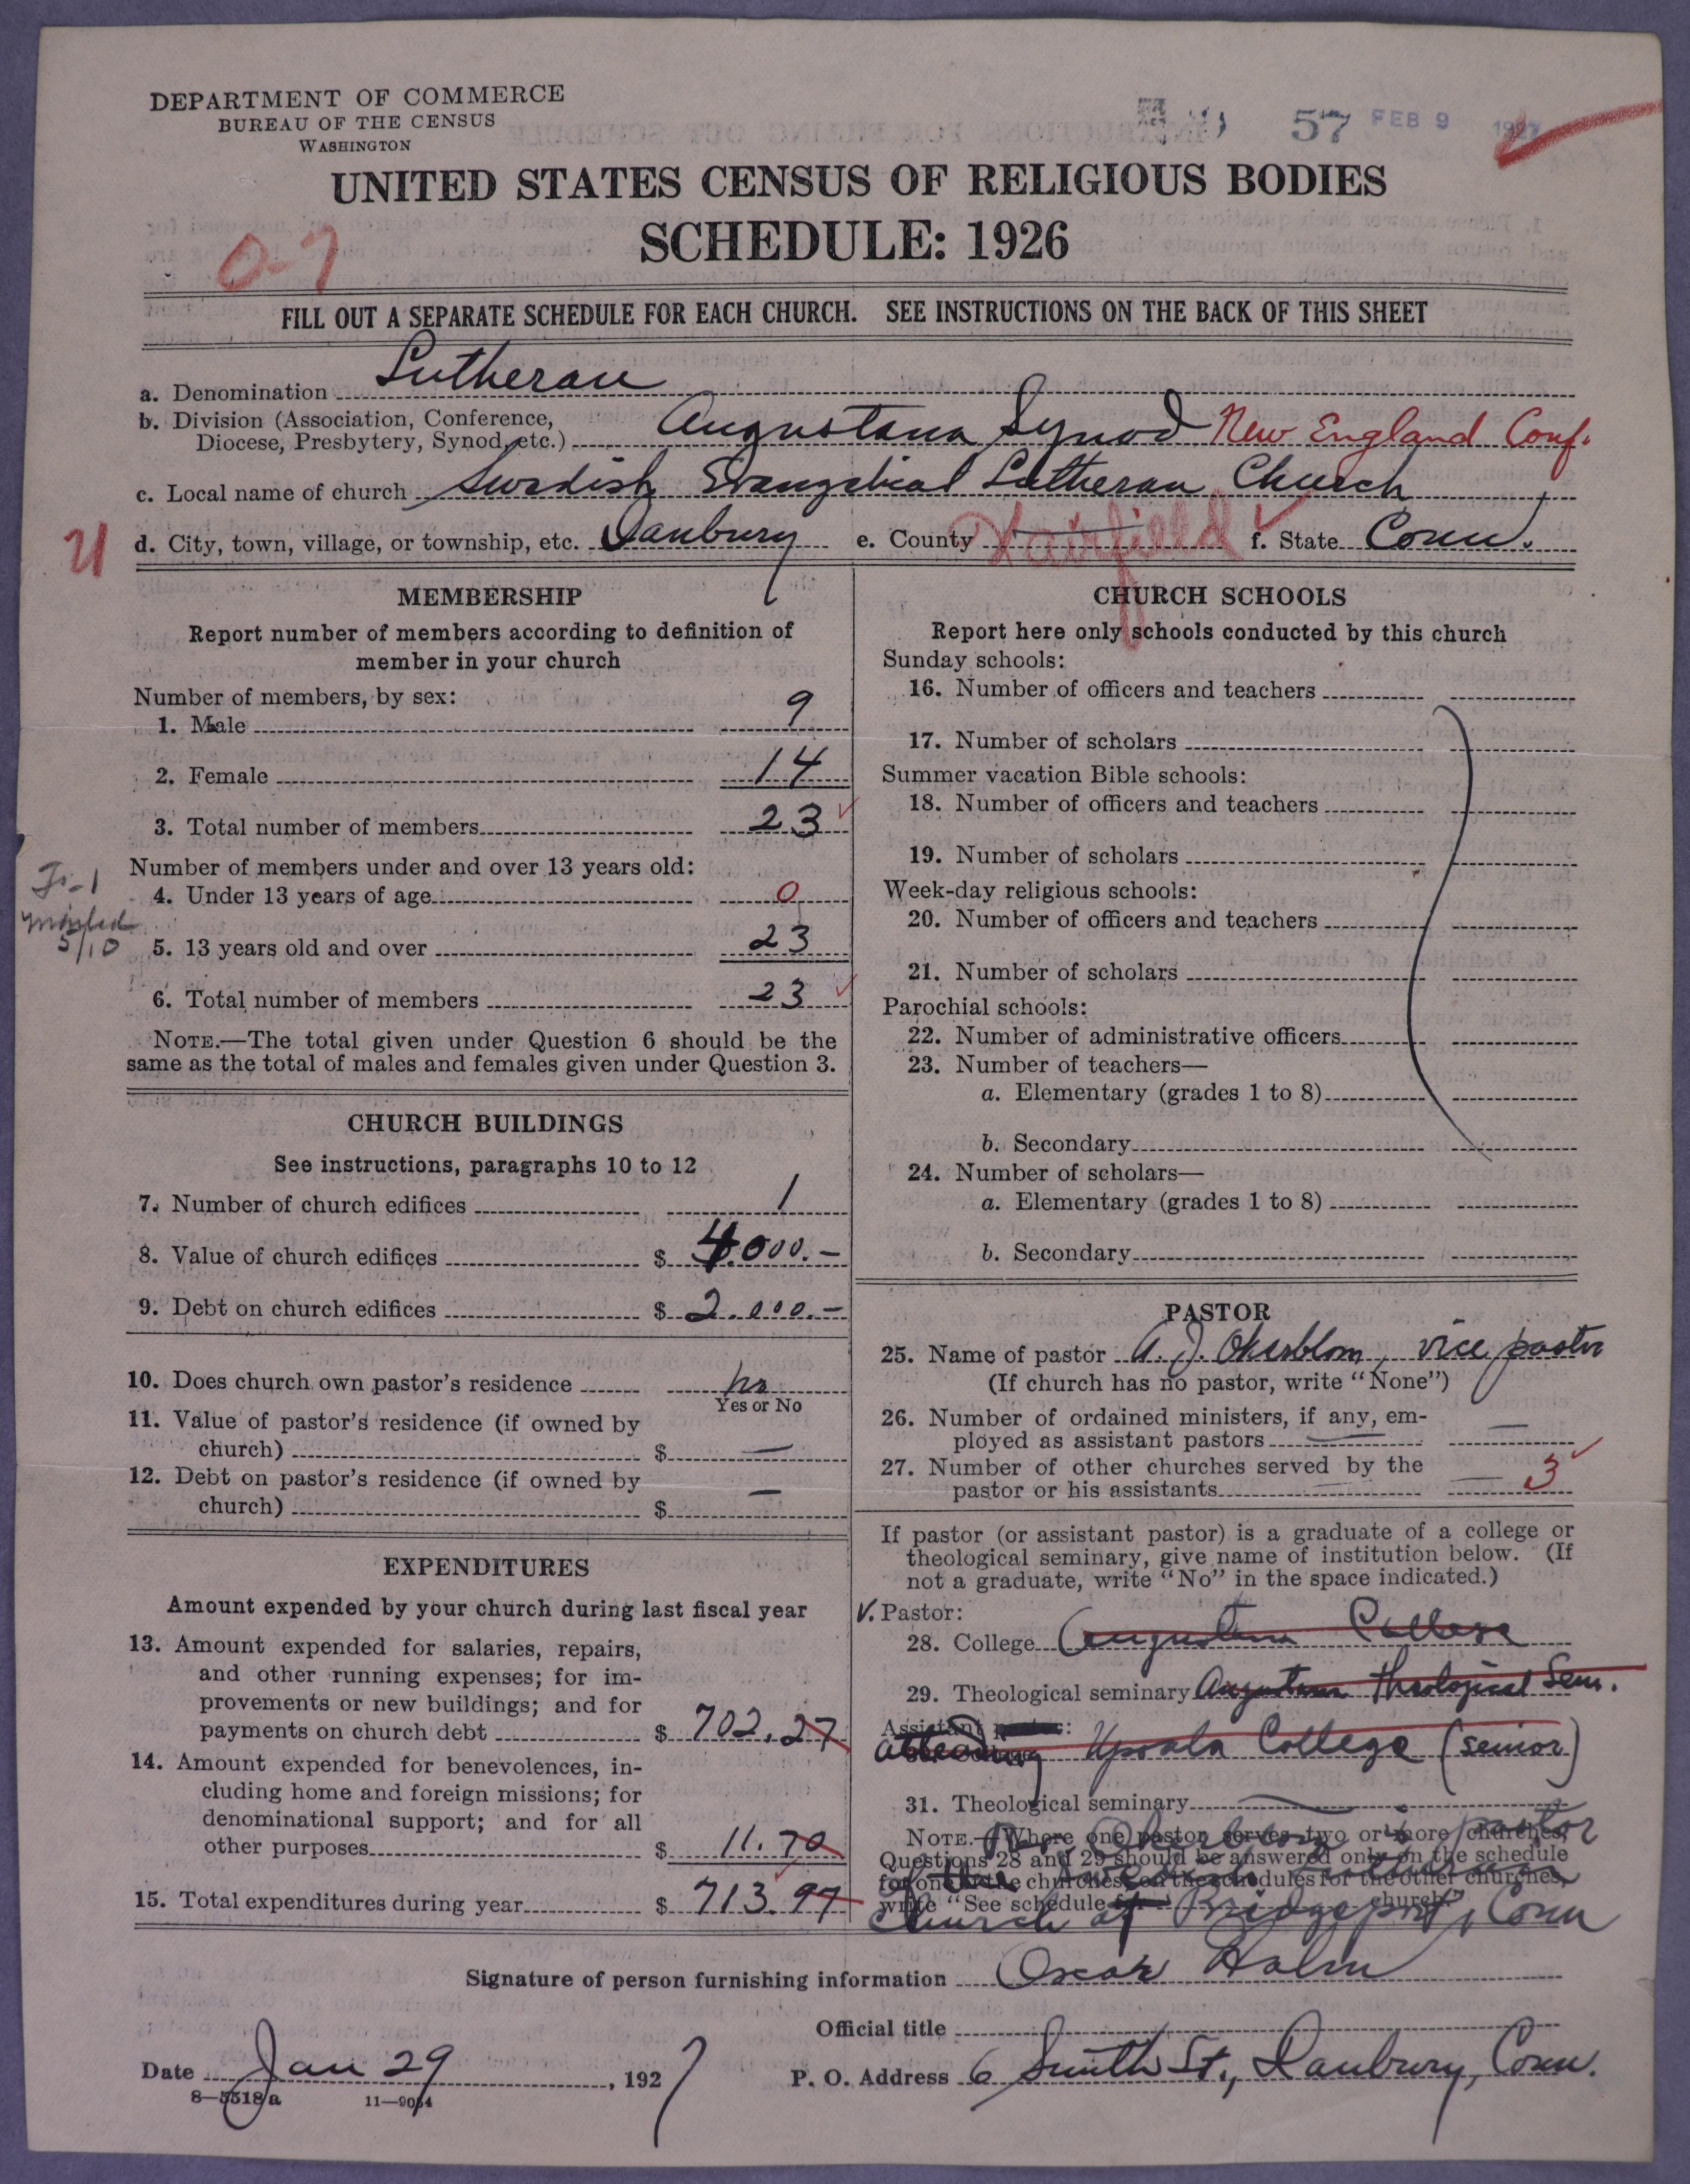 DEPARTMENT OF COMMERCE
BUREAU OF THE CENSUS
WASHINGTON
57 FEB 9 1927
UNITED STATES CENSUS OF RELIGIOUS BODIES
SCHEDULE: 1926
0-7
FILL OUT A SEPARATE SCHEDULE FOR EACH CHURCH. SEE INSTRUCTIONS ON THE BACK OF THIS SHEET
a. Denomination Lutheran
b. Division (Association, Conference,
Diocese, Presbytery, Synod, etc.) Augustana Synod New England Conf.
c. Local name of church Swedish Evangelical Lutheran Church
d. City, town, village, or township, etc. Danbury e. County Fairfield f. State Conn.
MEMBERSHIP
Report number of members according to definition of
member in your church
Number of members, by sex:
1. Male 9
2. Female 14
3. Total number of members 23
Number of members under and over 13 years old:
4. Under 13 years of age 0
5. 13 years old and over 23
5/10
6. Total number of members 23
NOTE.—The total given under Question 6 should be the
same as the total of males and females given under Question 3.
CHURCH BUILDINGS
See instructions, paragraphs 10 to 12
7. Number of church edifices 1
8. Value of church edifices $ 4.000.-
9. Debt on church edifices $ 2.000.-
10. Does church own pastor's residence no
Yes or No
11. Value of pastor's residence (if owned by
church) $ —
12. Debt on pastor's residence (if owned by
church) $ —
EXPENDITURES
Amount expended by your church during last fiscal year
13. Amount expended for salaries, repairs,
and other running expenses; for im-
provements or new buildings; and for
payments on church debt $ 702.27
14. Amount expended for benevolences, in-
cluding home and foreign missions; for
denominational support; and for all
other purposes $ 11.70
15. Total expenditures during year $ 713.97
CHURCH SCHOOLS
Report here only schools conducted by this church
Sunday schools:
16. Number of officers and teachers
17. Number of scholars
Summer vacation Bible schools:
18. Number of officers and teachers
19. Number of scholars
Week-day religious schools:
20. Number of officers and teachers
21. Number of scholars
Parochial schools:
22. Number of administrative officers
23. Number of teachers—
a. Elementary (grades 1 to 8)
b. Secondary
24. Number of scholars—
a. Elementary (grades 1 to 8)
b. Secondary
PASTOR
25. Name of pastor A. J. Okerblom, vice pastor
(If church has no pastor, write "None")
26. Number of ordained ministers, if any, em-
ployed as assistant pastors —
27. Number of other churches served by the
pastor or his assistants — 3
If pastor (or assistant pastor) is a graduate of a college or
theological seminary, give name of institution below. (If
not a graduate, write "No" in the space indicated.)
V. Pastor:
28. College Augustana College
29. Theological seminary Augustana Theological Sem.
Assistant
attending Upsala College (senior)
31. Theological seminary
NOTE.—Where one pastor serves two or more churches,
Questions 28 and 29 should be answered only on the schedule
for one of the churches; on the schedules for the other churches,
write "See schedule for church"
Okerblom is pastor
of the Lutheran
Church at Bridgeport, Conn
Signature of person furnishing information Oscar Holm
Official title
Date Jan 29, 1927
P. O. Address 6 Smith St., Danbury, Conn.
8—5518a 11—9054